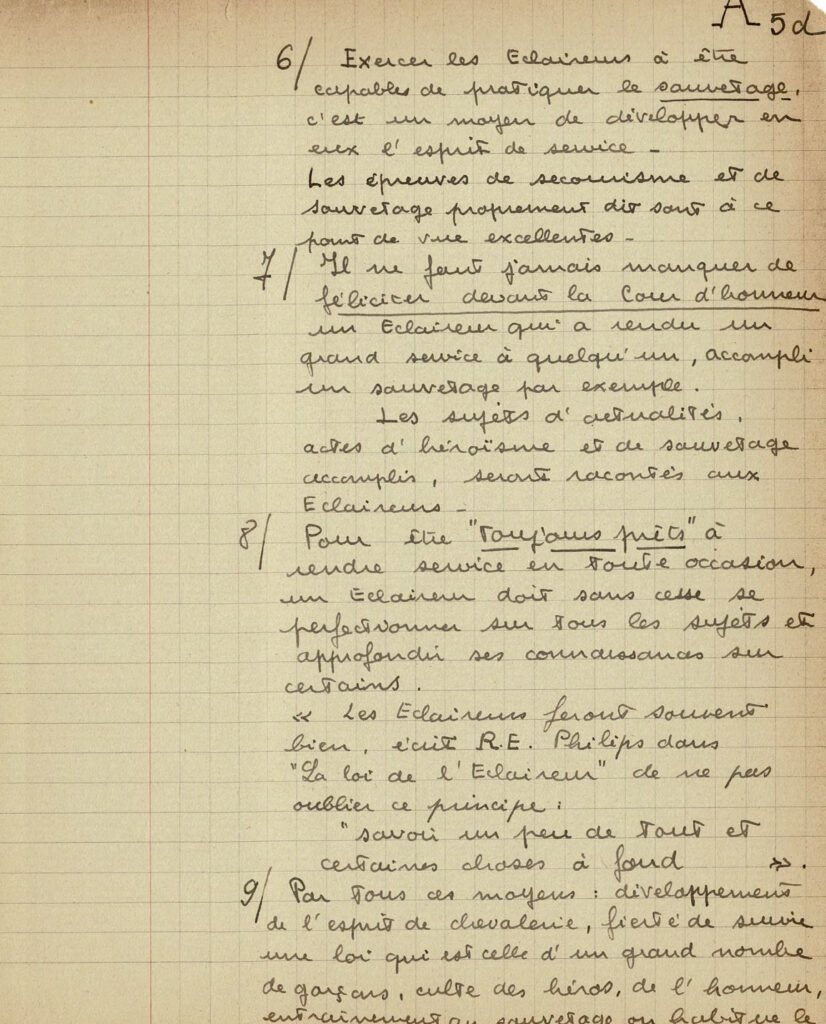 A 5d
6/ Exercer les Eclaireurs à être
capables de pratiquer le sauvetage,
c'est un moyen de développer en
eux l'esprit de service -
Les épreuves de secourisme et de
sauvetage proprement dit sont à ce
point de vue excellentes -
7/ Il ne faut jamais manquer de
féliciter devant la Cour d'honneur
un Eclaireur qui a rendu un
grand service à quelqu'un, accompli
un sauvetage par exemple.
Les sujets d'actualités,
actes d'héroïsme et de sauvetage
accomplis, seront racontés aux
Eclaireurs -
8/ Pour être "toujours prêts" à
rendre service en toute occasion,
un Eclaireur doit sans cesse se
perfectionner sur tous les sujets et
approfondir ses connaissances sur
certains.
« Les Eclaireurs feront souvent
bien, écrit R.E. Philips dans
"La loi de l'Eclaireur" de ne pas
oublier ce principe :
"savoir un peu de tout et
certaines choses à fond ».
9/ Par tous ces moyens : développement
de l'esprit de chevalerie, fierté de suivre
une loi qui est celle d'un grand nombre
de garçons, culte des héros, de l'honneur,
entraînement au sauvetage on habitue le